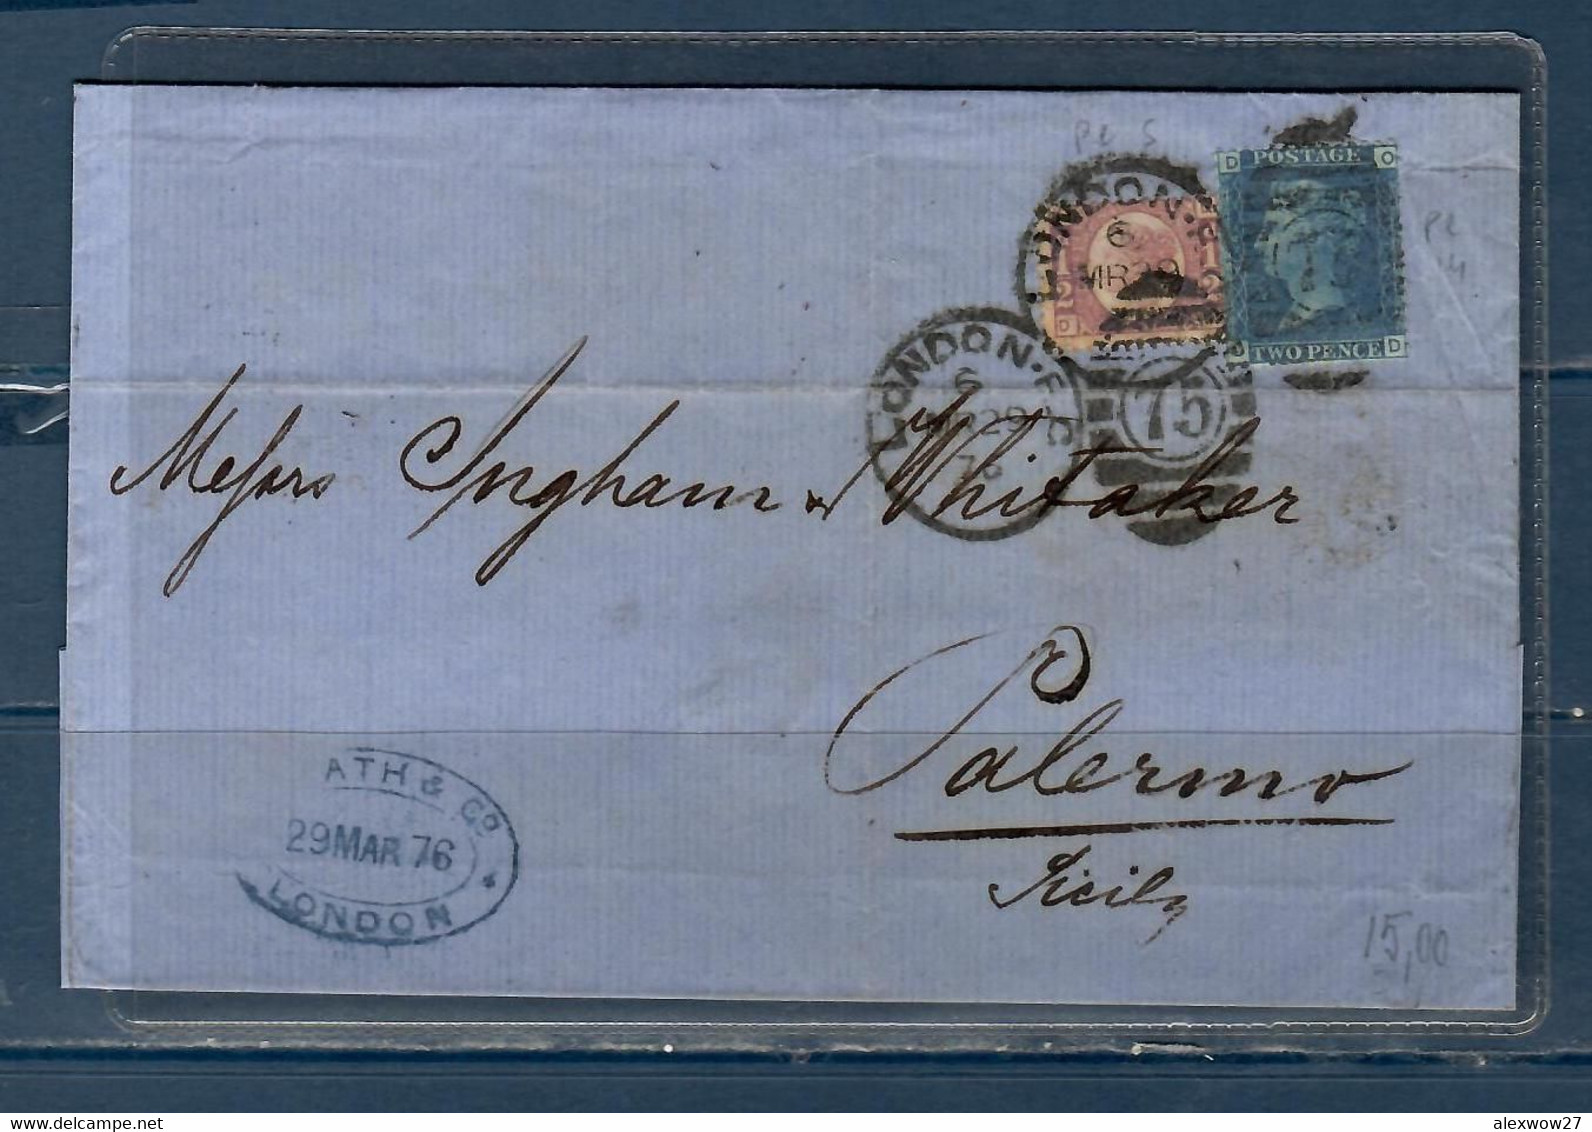 PL 5
D POSTAGE O
PL
14
LONDON·E
6
MR 29
1 1
2 2
D
D TWO PENCE D
LONDON·EC
6
MR 29
76
75
Messrs Ingham & Whitaker
Palermo
Sicily
ATH & CO
29 MAR 76
LONDON
15,00
alexwow27